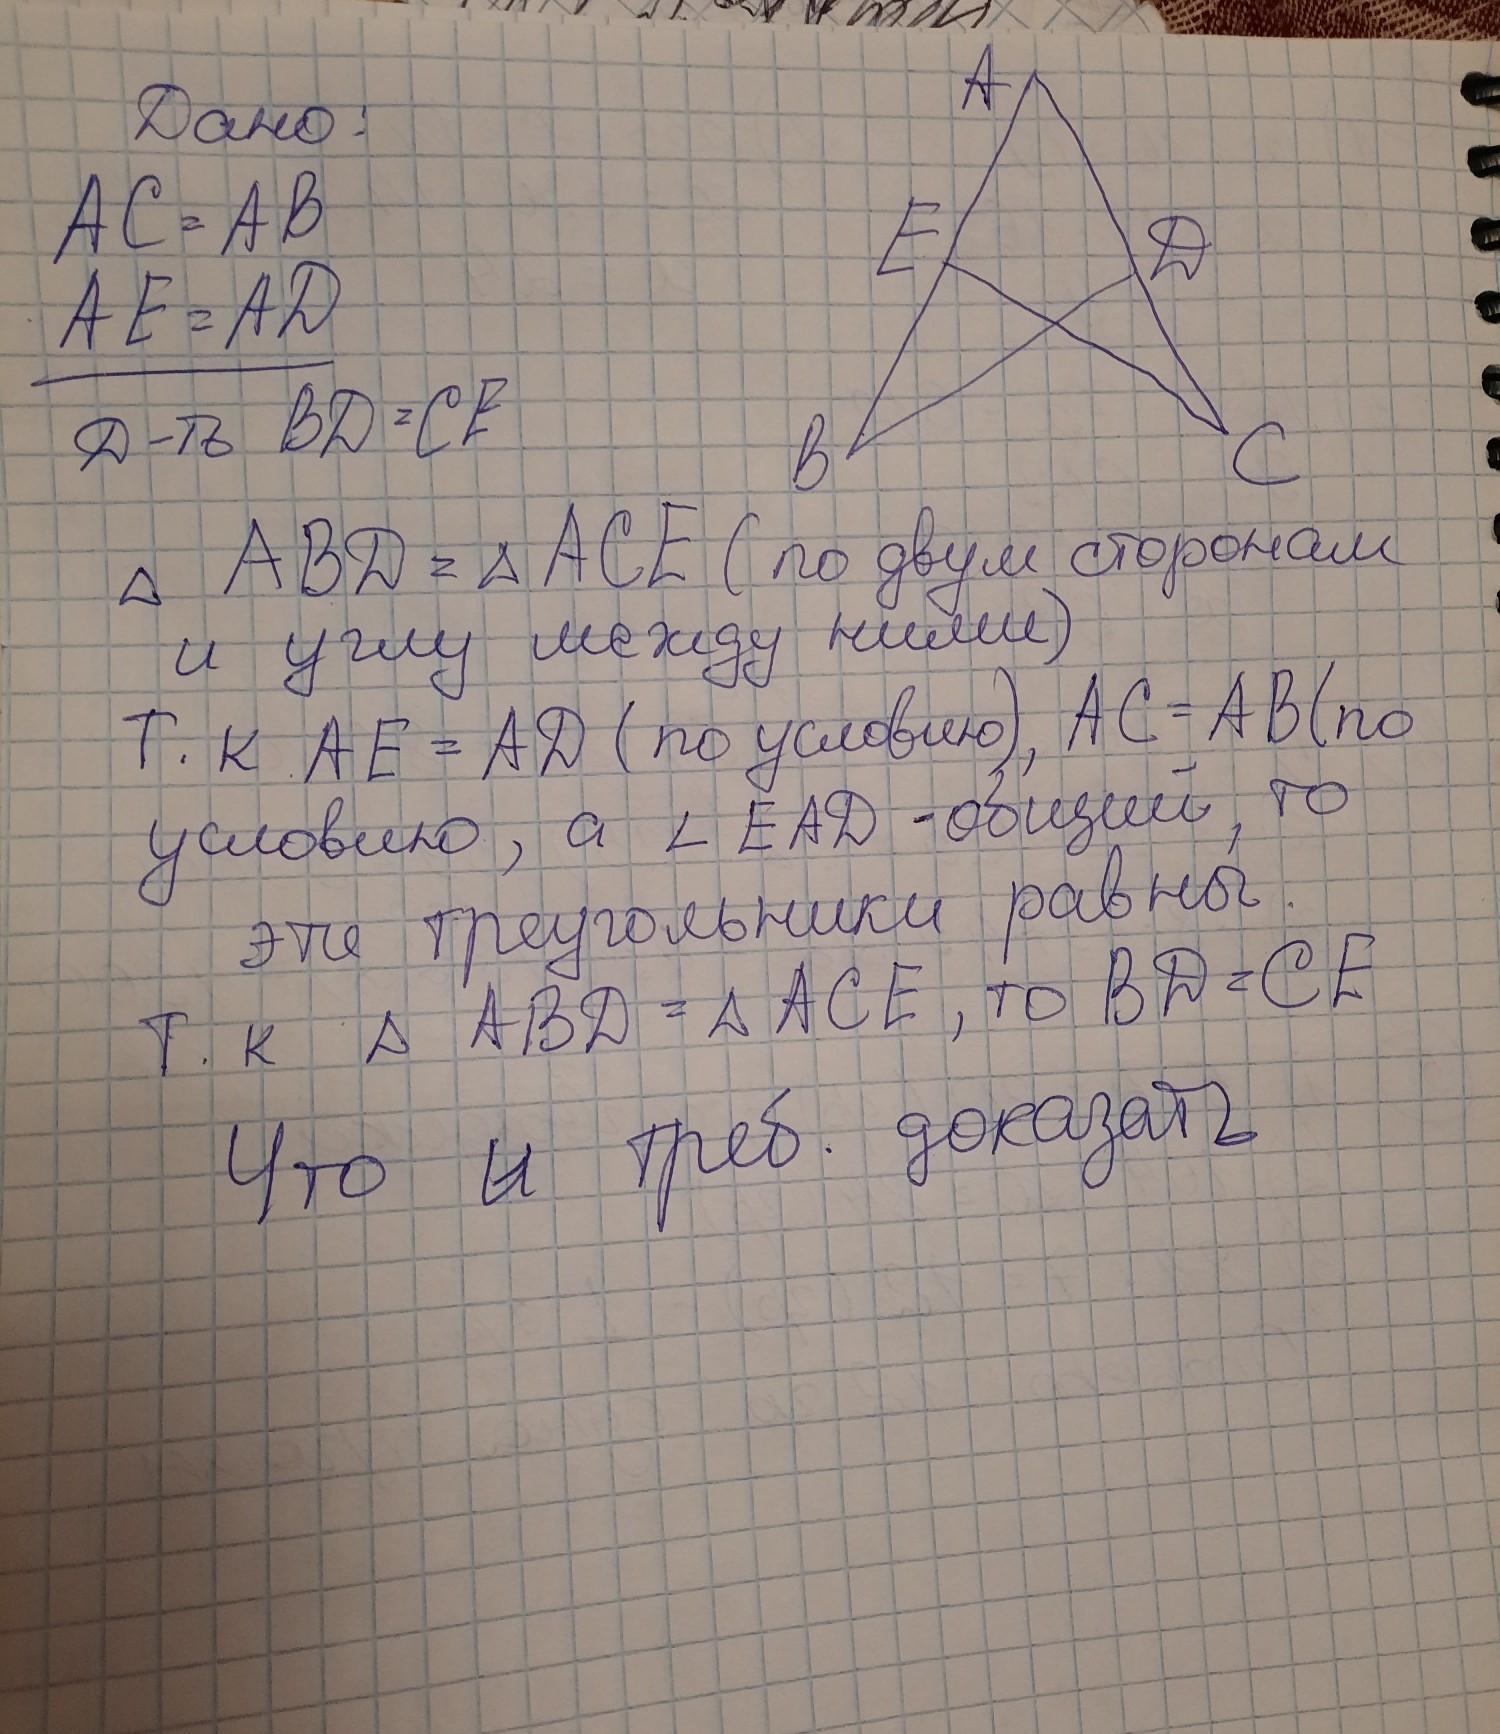 Дано:
AC = AB
AE = AD
Д-ть BD = CE
A
E
D
B
C
△ ABD = △ ACE (по двум сторонам
и углу между ними)
Т.к AE = AD (по условию), AC = AB (по
условию, а ∠ EAD - общий, то
эти треугольники равны.
Т.к △ ABD = △ ACE, то BD = CE
Что и треб. доказать